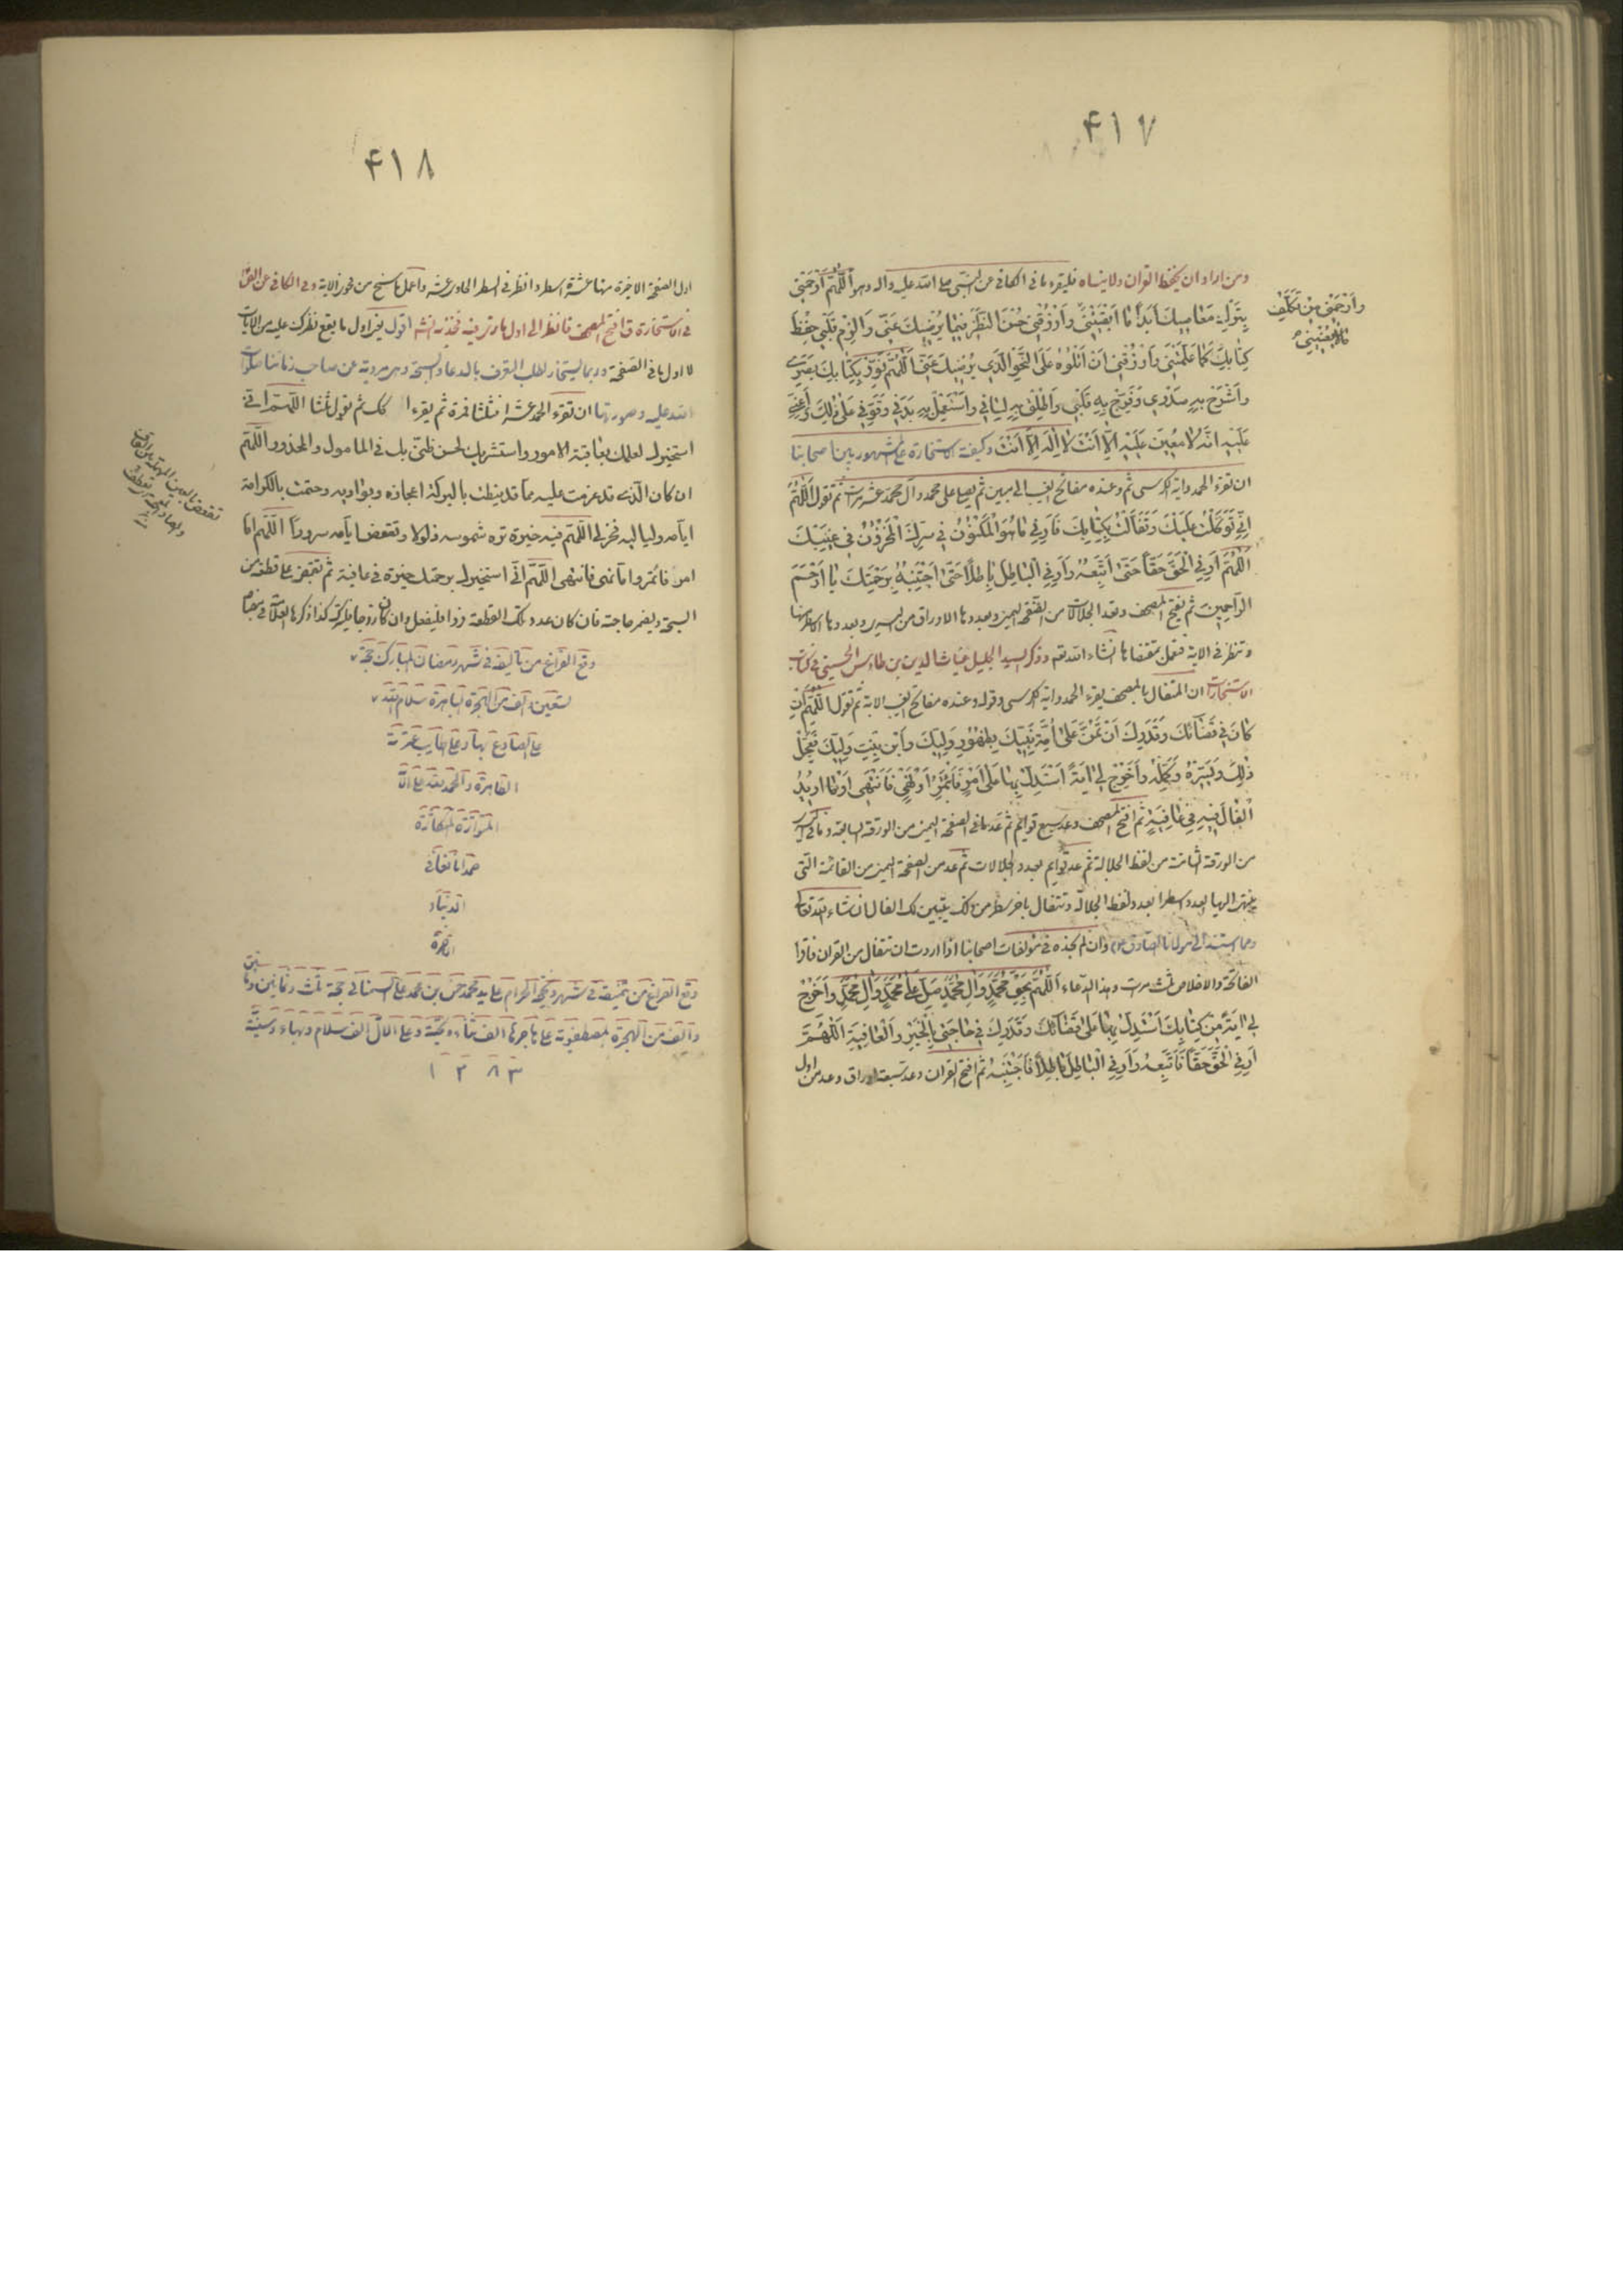 ۴۱۷
ومن اراد ان يحفظ القران ولا ينساه فليقرء ما فى الكافى عن النبى صلى الله عليه واله وهو اَللّٰهُمَّ ارْحَمْنِى
بِتَرْكِ مَعَاصِيكَ اَبَدًا مَا اَبْقَيْتَنِى وَارْزُقْنِى حُسْنَ النَّظَرِ فِيمَا يُرْضِيكَ عَنِّى وَاَلْزِمْ قَلْبِى حِفْظَ
وَارْحَمْنِى مِنْ تَكَلُّفِ
مَا لَا يَعْنِينِى
كِتَابِكَ كَمَا عَلَّمْتَنِى وَارْزُقْنِى اَنْ اَتْلُوَهُ عَلَى النَّحْوِ الَّذِى يُرْضِيكَ عَنِّى اَللّٰهُمَّ نَوِّرْ بِكِتَابِكَ بَصَرِى
وَاشْرَحْ بِهِ صَدْرِى وَفَرِّحْ بِهِ قَلْبِى وَاَطْلِقْ بِهِ لِسَانِى وَاسْتَعْمِلْ بِهِ بَدَنِى وَقَوِّنِى عَلَى ذٰلِكَ وَاَعِنِّى
عَلَيْهِ اِنَّهُ لَا مُعِينَ عَلَيْهِ اِلَّا اَنْتَ لَا اِلٰهَ اِلَّا اَنْتَ وكيفية الاستخارة على المشهور بين اصحابنا
ان تقرء الحمد واية الكرسى ثم وعنده مفاتح الغيب الى مبين ثم يصلى على محمد وال محمد عشر مرات ثم تقول اَللّٰهُمَّ
اِنِّى تَوَكَّلْتُ عَلَيْكَ وَتَفَأَّلْتُ بِكِتَابِكَ فَاَرِنِى مَا هُوَ الْمَكْنُونُ فِى سِرِّكَ الْمَخْزُونُ فِى غَيْبِكَ
اَللّٰهُمَّ اَرِنِى الْحَقَّ حَقًّا حَتَّى اَتَّبِعَهُ وَاَرِنِى الْبَاطِلَ بَاطِلًا حَتَّى اَجْتَنِبَهُ بِرَحْمَتِكَ يَا اَرْحَمَ
الرَّاحِمِينَ ثم يفتح المصحف وتعد الجلالات من الصفحة اليمنى وبعددها الاوراق من اليسرى وبعددها الاسطر منها
وتنظر فى الاية فتعمل بمقتضاها انشاء الله تعم وذكر السيد الجليل غياث الدين بن طاوس الحسينى فى كتاب
الاستخارات ان المتفال بالمصحف يقرء الحمد واية الكرسى وقوله وعنده مفاتح الغيب الاية ثم تقول اَللّٰهُمَّ اِنْ
كَانَ فِى قَضَائِكَ وَقَدَرِكَ اَنْ تَمُنَّ عَلَى اُمَّةِ نَبِيِّكَ بِظُهُورِ وَلِيِّكَ وَابْنِ بِنْتِ نَبِيِّكَ فَعَجِّلْ
ذٰلِكَ وَيَسِّرْهُ وَكَمِّلْهُ وَاَخْرِجْ لِى اٰيَةً اَسْتَدِلُّ بِهَا عَلَى اَمْرٍ فَاَئْتَمِرُ اَوْ نَهْىٍ فَاَنْتَهِى اَوْ مَا اُرِيدُ
الْفَالَ فِيهِ فِى عَافِيَةٍ ثم افتح المصحف وعد سبع قوايم ثم عد ما فى الصفحة اليمنى من الورقة السابعة وما فى اليسرى
من الورقة الثامنة من لفظ الجلالة ثم عد قوايم بعدد الجلالات ثم عد من الصفحة اليمنى من القائمة التى
ينتهى اليها العدد اسطرا بعدد لفظ الجلالة وتتفال باخر سطر من ذلك يتبين لك الفال ان شاء الله تعالى
ومما يستند الى مولانا الصادق وان لم نجده فى مؤلفات اصحابنا اذا اردت ان تتفال من القران فاقرا
الفاتحة والاخلاص ثلث مرات وهذا الدعاء اَللّٰهُمَّ بِحَقِّ مُحَمَّدٍ وَاٰلِ مُحَمَّدٍ صَلِّ عَلَى مُحَمَّدٍ وَاٰلِ مُحَمَّدٍ وَاَخْرِجْ
لِى اٰيَةً مِنْ كِتَابِكَ اَسْتَدِلُّ بِهَا عَلَى قَضَائِكَ وَقَدَرِكَ فِى حَاجَتِى بِالْخَيْرِ وَالْعَافِيَةِ اَللّٰهُمَّ
اَرِنِى الْحَقَّ حَقًّا فَاَتَّبِعَهُ وَاَرِنِى الْبَاطِلَ بَاطِلًا فَاَجْتَنِبَهُ ثم افتح القران وعد سبعة اوراق وعد من اول
۴۱۸
اول الصفحة الاخيرة منها عشرة اسطر وانظر فى السطر الحادى عشر واعمل ما سنح من فحوى الاية وفى الكافى عن
فى الاستخارة قال افتح المصحف فانظر الى اول ما ترى فيه فخذ به انشا الله اقول يعنى اول ما يقع نظرك عليه من الايات
لا اول ما فى الصفحة وربما يستخار لطلب التعرف بالدعاء والسبحة وهى مروية عن صاحب زماننا صلوات
الله عليه وصورتها ان تقرء الحمد عشرا فثلثا فمرة ثم يقرء كك ثم تقول ثلثا اللّهم انى
استخيرك لعلمك بعاقبة الامور واستشيرك لحسن ظنى بك فى المأمول والمحذور اللّهم
ان كان الذى قد عزمت عليه مما قد نيطت بالبركة اعجازه وبواديه وحفت بالكرامة
ايامه ولياليه فخر لى اللّهم فيه خيرة ترد شموسه ذلولا وتقعض ايامه سرورا اللّهم اما
امر فائتمر واما نهى فانتهى اللّهم انى استخيرك برحمتك خيرة فى عافية ثم تقبض على قطعة من
السبحة ويضمر حاجته فان كان عدد تلك القطعة فردا فليفعل وان كان زوجا فليترك كذا ذكره العلامة فى
وقع الفراغ من تاليفه فى شهر رمضان المبارك
تسعين والف من الهجرة الباهرة سلام الله
على الصادع بها وعلى اطايب عترته
الطاهرة والحمد لله على الائه
المتواترة المتكاثرة
حمدا
الدنيا و
الاخرة
وقع الفراغ من تنميقه فى شهر ذيحجة الحرام على يد محمد حسن بن محمد على السمنانى فى حجة ثلث وثمانين ومأتين
والف من الهجرة المصطفوية على هاجرها الف ثناء وتحية وعلى الال الف سلام وبهاء وسنية
۱۲۸۳